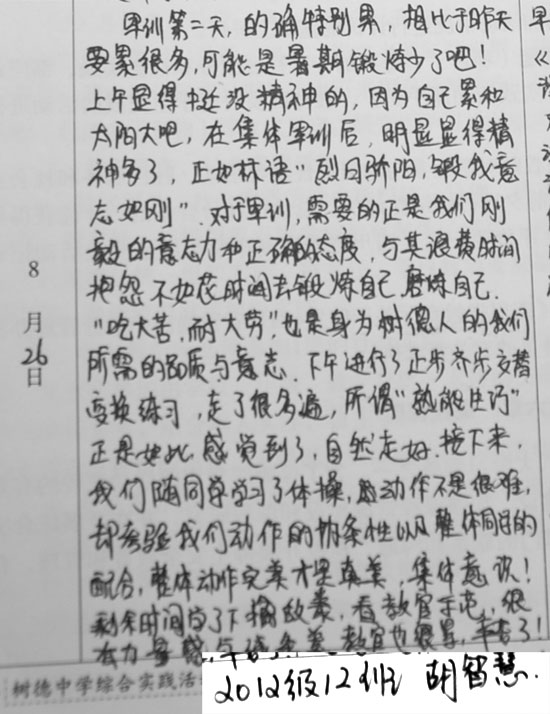 军训第二天，的确特别累，相比于昨天
要累很多，可能是暑期锻炼少了吧！
上午显得 没精神的，因为自己累和
太阳大吧，在集体军训后，明显显得精
神多了，正如标语“烈日骄阳，锻我意
志如刚”。对于军训，需要的正是我们刚
毅的意志力和正确的态度，与其浪费时间
抱怨 不如花时间去锻炼自己 磨炼自己.
“吃大苦，耐大劳”也是身为树德人的我们
所需的品质与意志. 下午进行了正步齐步交替
变换练习，走了很多遍，所谓“熟能生巧”
正是如此 感觉到了，自然走好. 接下来，
我们随同学学习了体操， 动作不是很难，
却考验我们动作的协条性以及整体同学的
配合，整体动作完美才是真美，集体意识！
剩余时间 了下 ，看教官 ，很
有力量 教官也很累，辛苦了！
8
月
26
日
树德中学综合实践活
2012级12班 胡智慧.
早
《